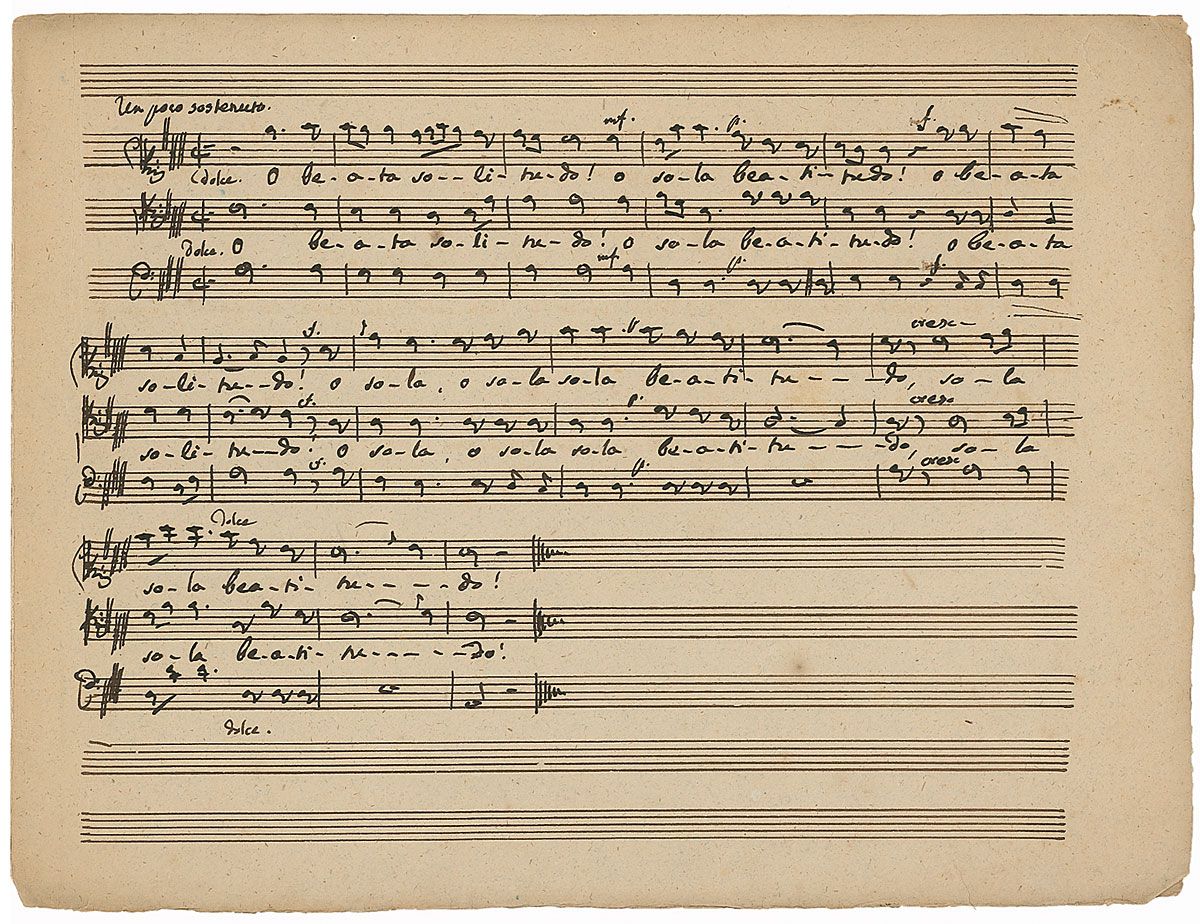 Un poco sostenuto.
mf. p. f.
dolce. O be-a-ta so--li-tu-do! o so-la bea-ti-tudo! o be-a-ta
dolce. O be-a-ta so-li-tu-do! o so-la be-a-ti-tu-do! o be-a-ta
mf p. f.
f. p cresc-
so-li-tu--do! o so-la, o so-la so-la be-a-ti-tu----do, so-la
f. p. cresc
so-li-tu--do! o so-la, o so-la so-la be-a-ti-tu----do, so-la
f. p. cresc
dolce
so-la bea-ti-tu-----do!
so-la be-a-ti-tu-----do!
dolce.